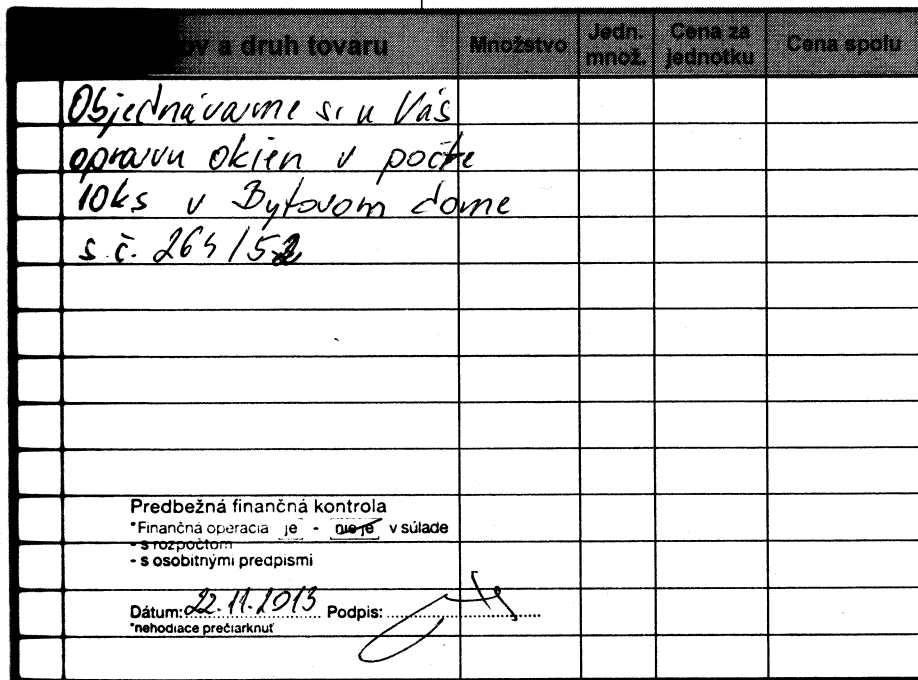 ov a druh tovaru Množstvo Jedn. množ. Cena za jednotku Cena spolu
Objednávame si u Vás
opravu okien v počte
10ks v Bytovom dome
s.č. 264/52
Predbežná finančná kontrola
*Finančná operácia je - nie je v súlade
- s rozpočtom
- s osobitnými predpismi
Dátum: 22.11.2013 Podpis:
*nehodiace prečiarknuť